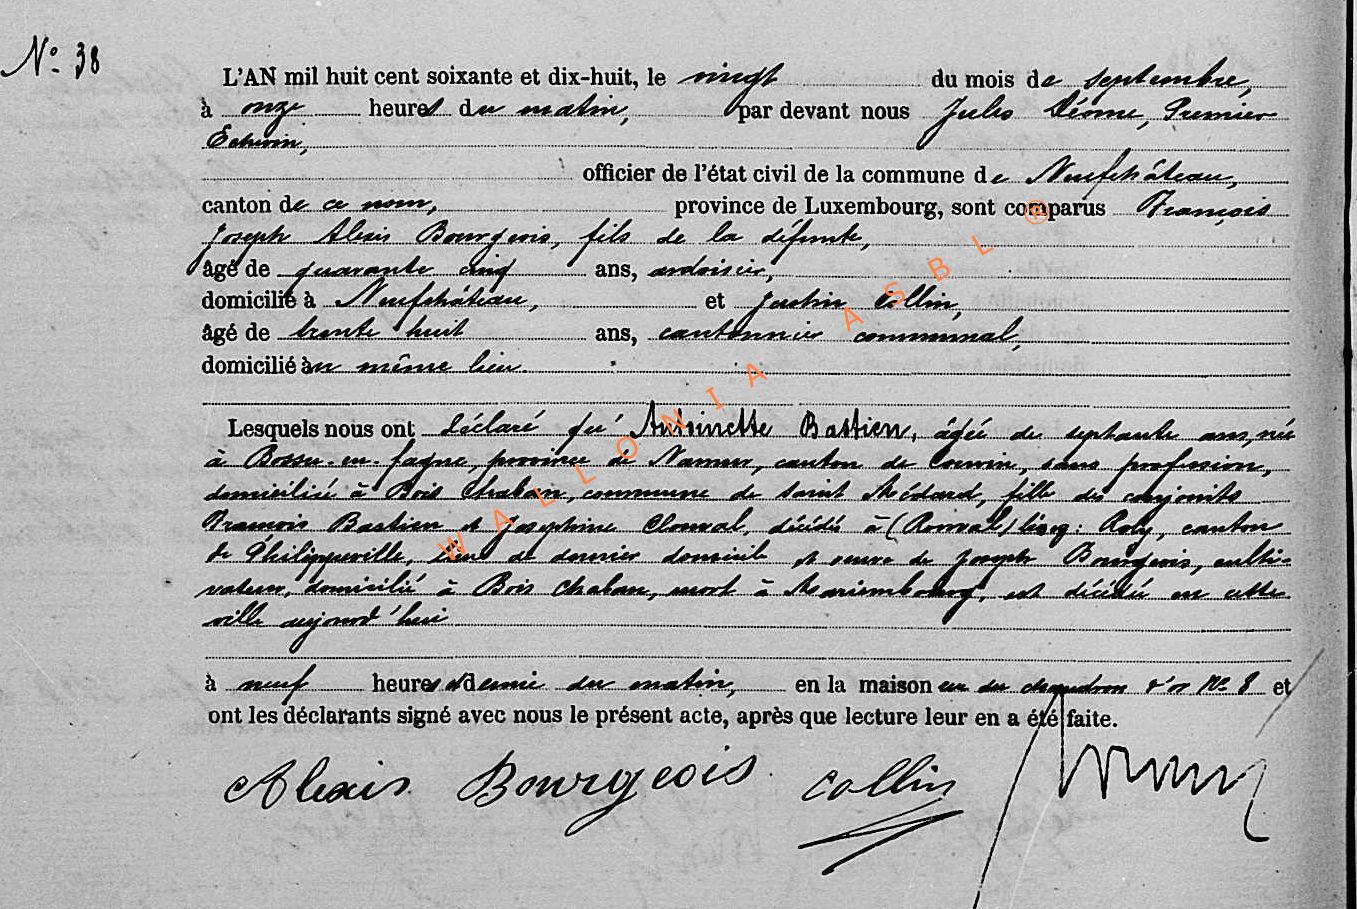 N° 38
L'AN mil huit cent soixante et dix-huit, le vingt du mois de septembre,
à onze heures du matin, par devant nous Jules Premier
Echevin,
officier de l'état civil de la commune de Neufchâteau,
canton de ce nom, province de Luxembourg, sont comparus François
Joseph Alexis Bourgeois, fils de la défunte,
âgé de quarante cinq ans, ardoisier,
domicilié à Neufchâteau, et Justin Collin,
âgé de trente huit ans, cantonnier communal,
domicilié au même lieu.
Lesquels nous ont déclaré qu'Antoinette Bastien, âgée de septante ans, née
à Boussu-en-fagne, province de Namur, canton de Couvin, sans profession,
domiciliée à Bois Chaban, commune de Saint Médard, fille des conjoints
François Bastien et Josephine décédés à Roly, canton
de Philippeville, lieu de dernier domicile et veuve de Joseph Bourgeois, culti-
vateur, domicilié à Bois Chaban, mort à Mariembourg, est décédée en cette
ville aujourd'hui
à neuf heures et demie du matin, en la maison rue du chaudron d'or N° 8 et
ont les déclarants signé avec nous le présent acte, après que lecture leur en a été faite.
Alexis Bourgeois Collin
WALLONIA ASBL ®